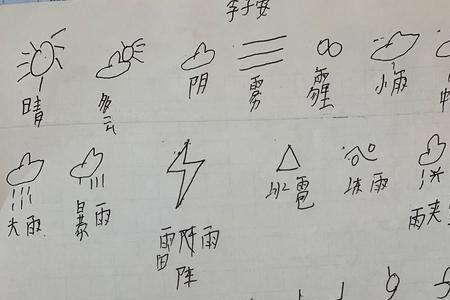 晴 多云 阴 雾 霾 小雨
大雨 暴雨 雷阵雨 冰雹 冻雨 雨夹
阵